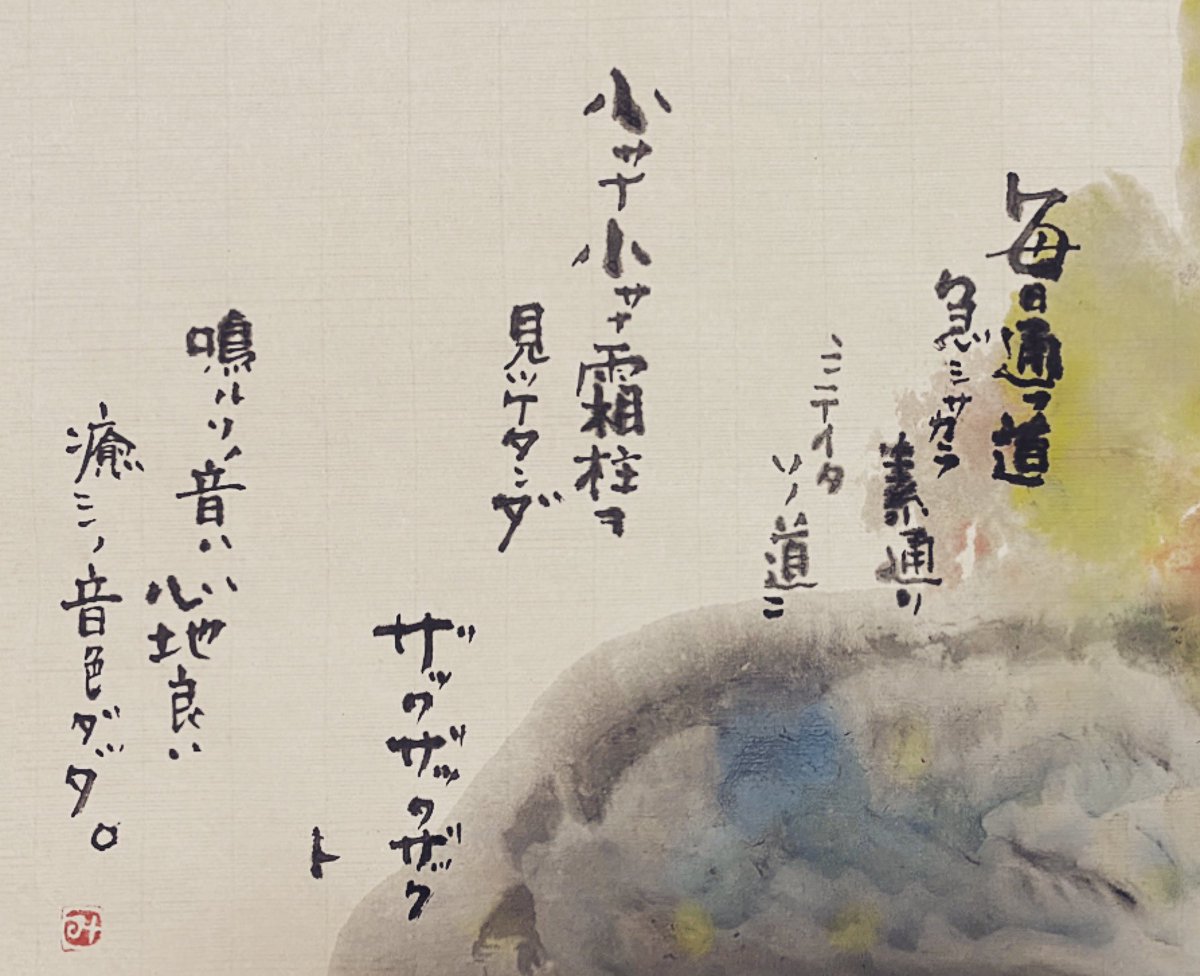 毎日通フ道
急
素通リ
シテイタ
ソノ道ニ
小サナ小サナ霜柱ヲ
見ツケタンダ
ザックザックザック
ト
鳴ルソノ音ハ
心地良い
癒シノ音色ダッタ。
み